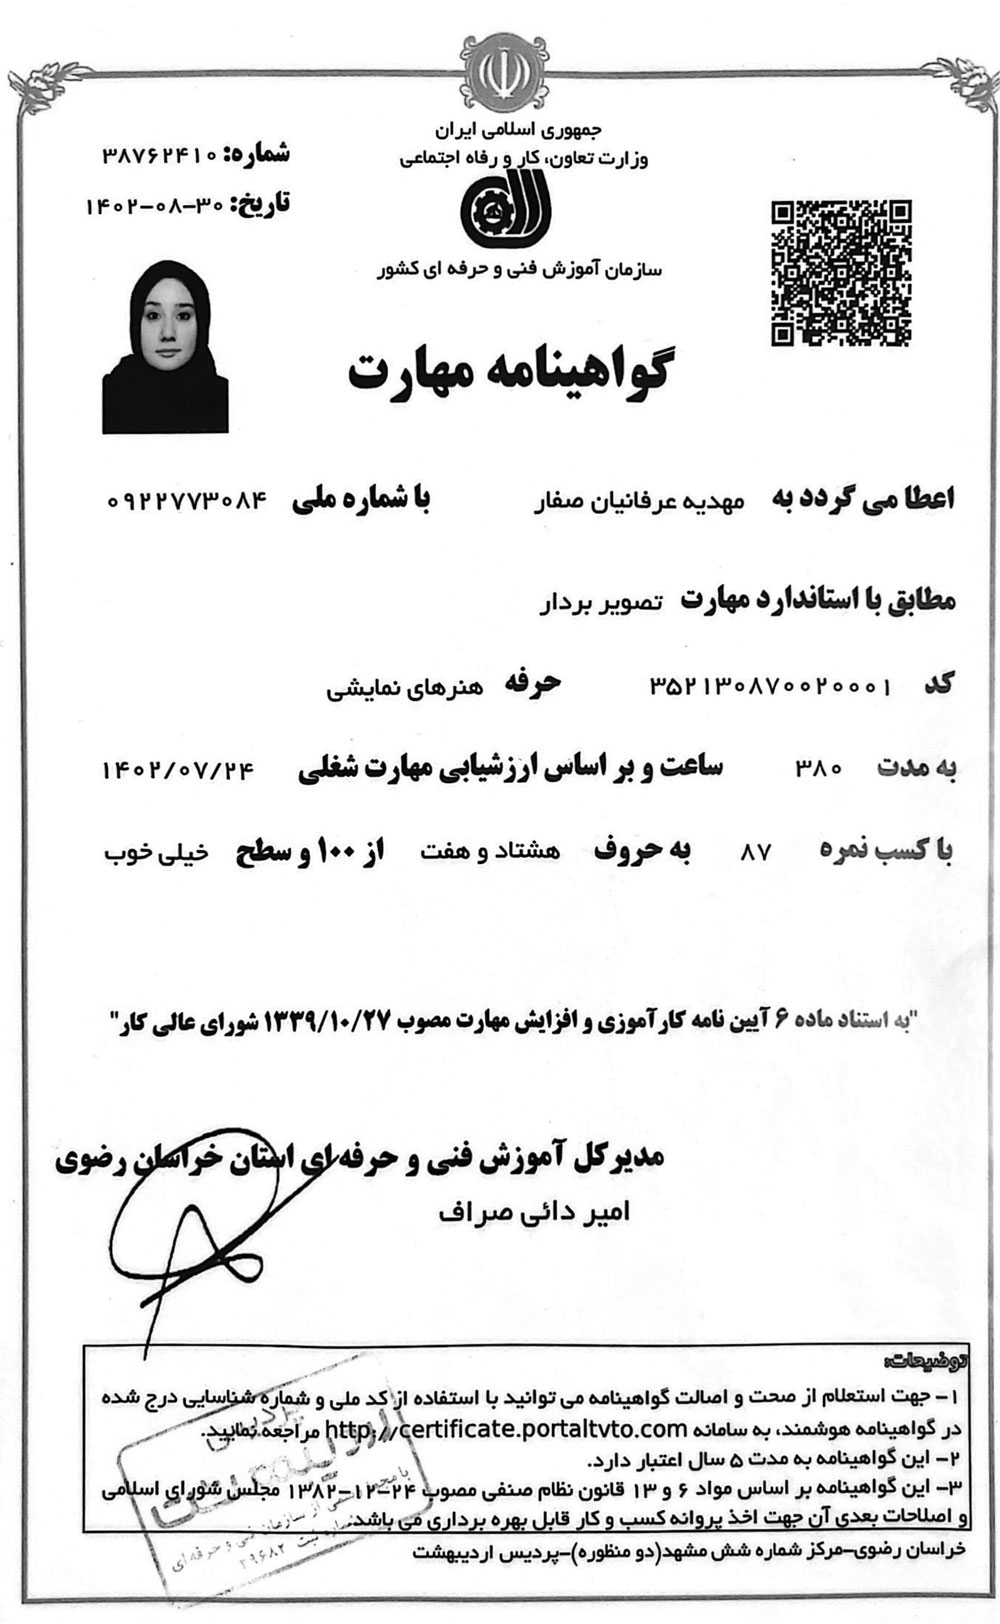 جمهوری اسلامی ایران
وزارت تعاون، کار و رفاه اجتماعی
شماره: ۳۸۷۶۲۴۱۰
تاریخ: ۱۴۰۲-۰۸-۳۰
سازمان آموزش فنی و حرفه ای کشور
گواهینامه مهارت
اعطا می گردد به مهدیه عرفانیان صفار با شماره ملی ۰۹۲۲۷۷۳۰۸۴
مطابق با استاندارد مهارت تصویر بردار
کد ۳۵۲۱۳۰۸۷۰۰۲۰۰۰۱ حرفه هنرهای نمایشی
به مدت ۳۸۰ ساعت و بر اساس ارزشیابی مهارت شغلی ۱۴۰۲/۰۷/۲۴
با کسب نمره ۸۷ به حروف هشتاد و هفت از ۱۰۰ و سطح خیلی خوب
"به استناد ماده ۶ آیین نامه کارآموزی و افزایش مهارت مصوب ۱۳۳۹/۱۰/۲۷ شورای عالی کار"
مدیرکل آموزش فنی و حرفه ای استان خراسان رضوی
امیر دائی صراف
توضیحات:
۱- جهت استعلام از صحت و اصالت گواهینامه می توانید با استفاده از کد ملی و شماره شناسایی درج شده
در گواهینامه هوشمند، به سامانه http://certificate.portaltvto.com مراجعه نمایید.
۲- این گواهینامه به مدت ۵ سال اعتبار دارد.
۳- این گواهینامه بر اساس مواد ۶ و ۱۳ قانون نظام صنفی مصوب ۲۴-۱۲-۱۳۸۲ مجلس شورای اسلامی
و اصلاحات بعدی آن جهت اخذ پروانه کسب و کار قابل بهره برداری می باشد.
خراسان رضوی-مرکز شماره شش مشهد(دو منظوره)-پردیس اردیبهشت
پردیس
اردیبهشت
از سازمان فنی و حرفه ای
شماره ثبت ۲۹۶۸۲